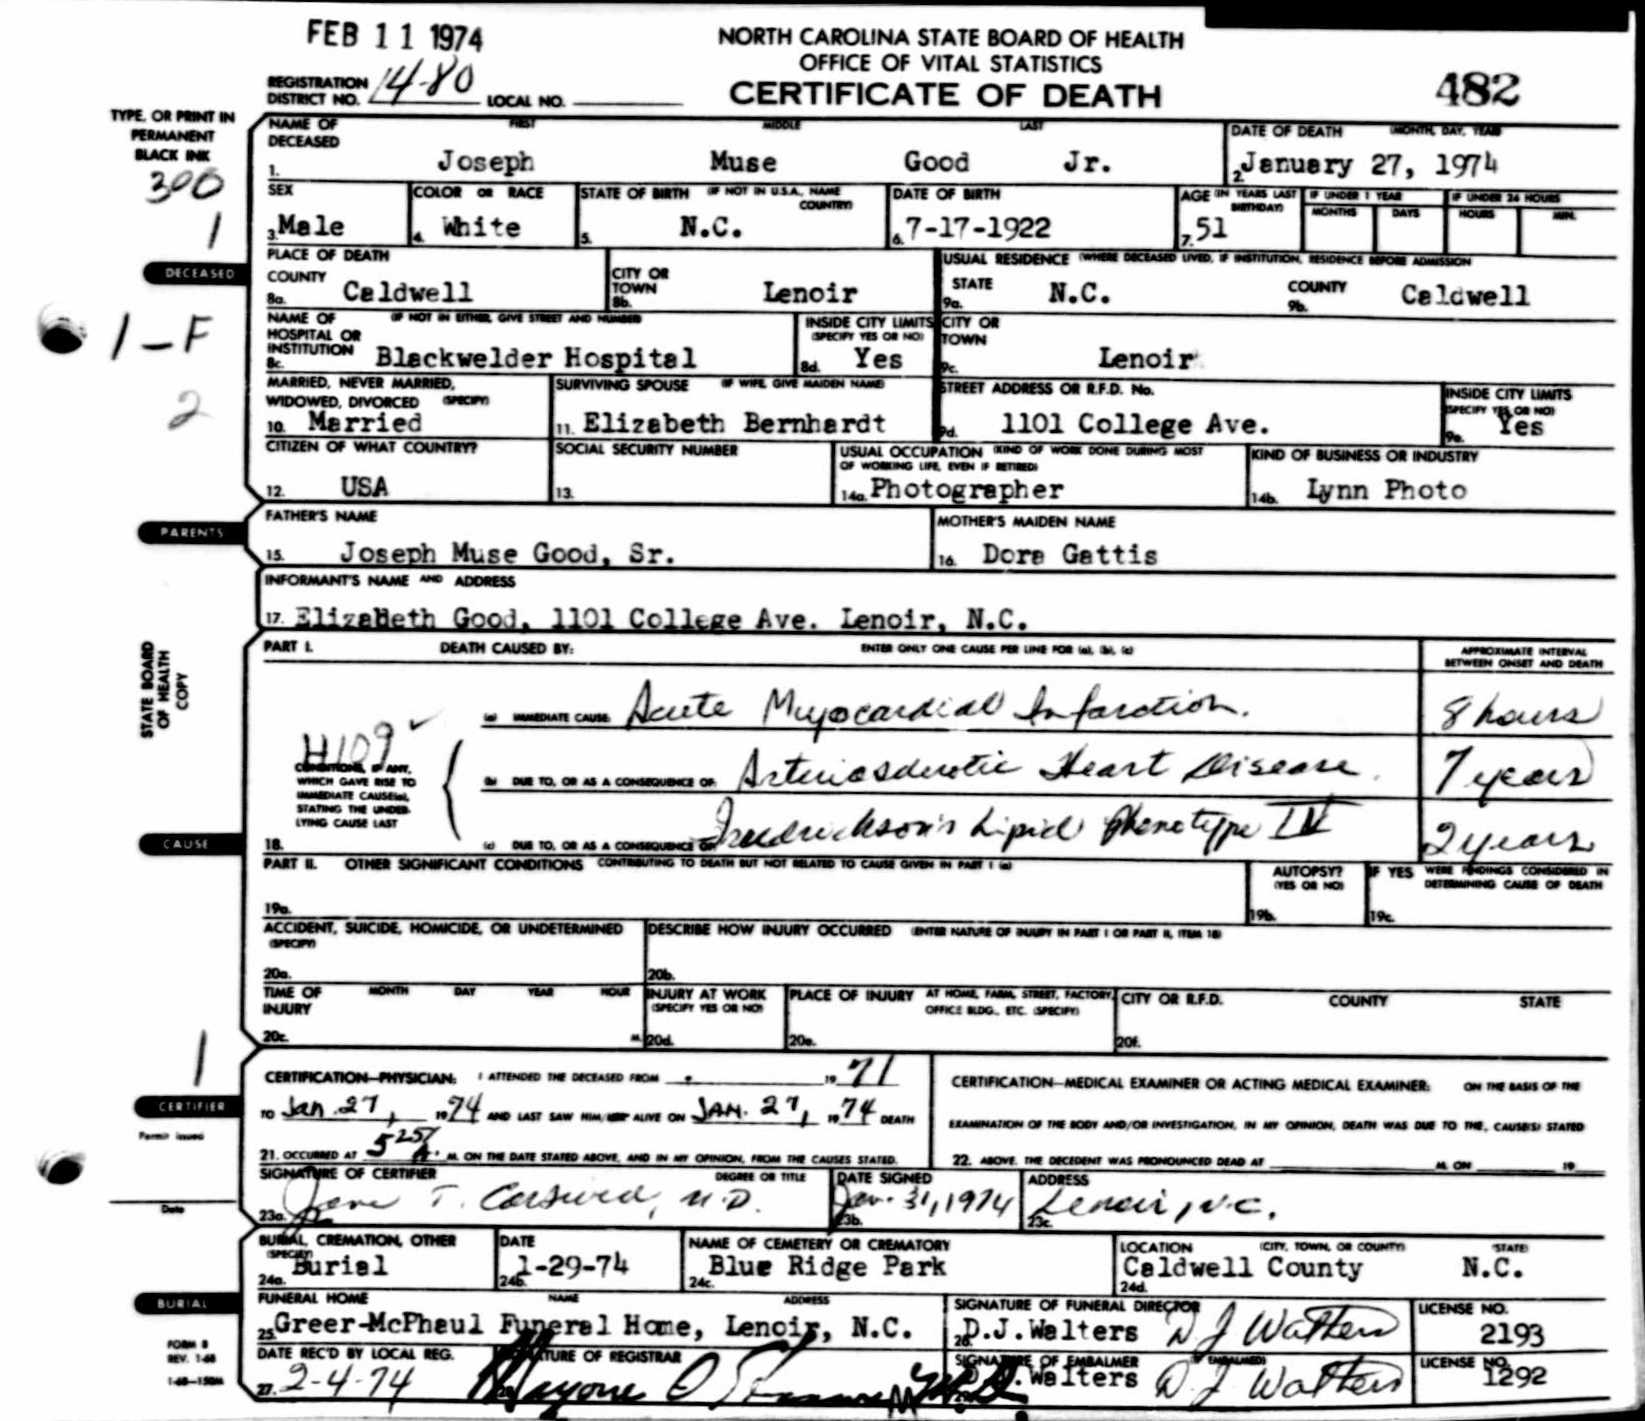 FEB 11 1974
NORTH CAROLINA STATE BOARD OF HEALTH
OFFICE OF VITAL STATISTICS
CERTIFICATE OF DEATH
482
REGISTRATION DISTRICT NO. 14-80 LOCAL NO.
TYPE, OR PRINT IN
PERMANENT
BLACK INK
300
1
NAME OF DECEASED FIRST MIDDLE LAST
1. Joseph Muse Good Jr.
DATE OF DEATH (MONTH, DAY, YEAR)
2. January 27, 1974
SEX
3. Male
COLOR OR RACE
4. White
STATE OF BIRTH (IF NOT IN U.S.A., NAME COUNTRY)
5. N.C.
DATE OF BIRTH
6. 7-17-1922
AGE (IN YEARS LAST BIRTHDAY)
7. 51
IF UNDER 1 YEAR
MONTHS DAYS
IF UNDER 24 HOURS
HOURS MIN.
DECEASED
PLACE OF DEATH
COUNTY
8a. Caldwell
CITY OR TOWN
8b. Lenoir
USUAL RESIDENCE (WHERE DECEASED LIVED, IF INSTITUTION, RESIDENCE BEFORE ADMISSION
STATE
9a. N.C.
COUNTY
9b. Caldwell
1-F
NAME OF HOSPITAL OR INSTITUTION (IF NOT IN EITHER, GIVE STREET AND NUMBER)
8c. Blackwelder Hospital
INSIDE CITY LIMITS (SPECIFY YES OR NO)
8d. Yes
CITY OR TOWN
9c. Lenoir
2
MARRIED, NEVER MARRIED, WIDOWED, DIVORCED (SPECIFY)
10. Married
SURVIVING SPOUSE (IF WIFE, GIVE MAIDEN NAME)
11. Elizabeth Bernhardt
STREET ADDRESS OR R.F.D. No.
9d. 1101 College Ave.
INSIDE CITY LIMITS (SPECIFY YES OR NO)
9e. Yes
CITIZEN OF WHAT COUNTRY?
12. USA
SOCIAL SECURITY NUMBER
13.
USUAL OCCUPATION (KIND OF WORK DONE DURING MOST OF WORKING LIFE, EVEN IF RETIRED)
14a. Photographer
KIND OF BUSINESS OR INDUSTRY
14b. Lynn Photo
PARENTS
FATHER'S NAME
15. Joseph Muse Good, Sr.
MOTHER'S MAIDEN NAME
16. Dora Gattis
INFORMANT'S NAME AND ADDRESS
17. Elizabeth Good, 1101 College Ave. Lenoir, N.C.
STATE BOARD
OF HEALTH
COPY
PART I. DEATH CAUSED BY: ENTER ONLY ONE CAUSE PER LINE FOR (a), (b), (c)
APPROXIMATE INTERVAL BETWEEN ONSET AND DEATH
(a) IMMEDIATE CAUSE: Acute Myocardial Infarction. 8 hours
H109
CONDITIONS, IF ANY, WHICH GAVE RISE TO IMMEDIATE CAUSE(a), STATING THE UNDERLYING CAUSE LAST
(b) DUE TO, OR AS A CONSEQUENCE OF: Arteriosclerotic Heart Disease. 7 years
CAUSE
18. (c) DUE TO, OR AS A CONSEQUENCE OF: Fredrickson's Lipid Phenotype IV 2 years
PART II. OTHER SIGNIFICANT CONDITIONS CONTRIBUTING TO DEATH BUT NOT RELATED TO CAUSE GIVEN IN PART I (a)
19a.
AUTOPSY? (YES OR NO)
19b.
IF YES WERE FINDINGS CONSIDERED IN DETERMINING CAUSE OF DEATH
19c.
ACCIDENT, SUICIDE, HOMICIDE, OR UNDETERMINED (SPECIFY)
20a.
DESCRIBE HOW INJURY OCCURRED (ENTER NATURE OF INJURY IN PART I OR PART II, ITEM 18)
20b.
TIME OF INJURY MONTH DAY YEAR HOUR
20c. M.
INJURY AT WORK (SPECIFY YES OR NO)
20d.
PLACE OF INJURY AT HOME, FARM, STREET, FACTORY, OFFICE BLDG., ETC. (SPECIFY)
20e.
CITY OR R.F.D. COUNTY STATE
20f.
1
CERTIFIER
Permit issued
Date
CERTIFICATION—PHYSICIAN: I ATTENDED THE DECEASED FROM 19 71
TO Jan. 27, 19 74 AND LAST SAW HIM/HER ALIVE ON JAN. 27, 19 74 DEATH
21. OCCURRED AT 5 25 A. M. ON THE DATE STATED ABOVE, AND IN MY OPINION, FROM THE CAUSES STATED.
CERTIFICATION—MEDICAL EXAMINER OR ACTING MEDICAL EXAMINER: ON THE BASIS OF THE
EXAMINATION OF THE BODY AND/OR INVESTIGATION, IN MY OPINION, DEATH WAS DUE TO THE, CAUSE(S) STATED
22. ABOVE. THE DECEDENT WAS PRONOUNCED DEAD AT M. ON 19
SIGNATURE OF CERTIFIER DEGREE OR TITLE
23a. Jane T. M.D.
DATE SIGNED
23b. Jan. 31, 1974
ADDRESS
23c. Lenoir, N.C.
BURIAL, CREMATION, OTHER (SPECIFY)
24a. Burial
DATE
24b. 1-29-74
NAME OF CEMETERY OR CREMATORY
24c. Blue Ridge Park
LOCATION (CITY, TOWN, OR COUNTY) (STATE)
24d. Caldwell County N.C.
BURIAL
FUNERAL HOME NAME ADDRESS
25. Greer-McPhaul Funeral Home, Lenoir, N.C.
SIGNATURE OF FUNERAL DIRECTOR
26. D.J.Walters D J Walters
LICENSE NO.
2193
FORM 8
REV. 1-68
1-68—150M
DATE REC'D BY LOCAL REG.
27. 2-4-74
SIGNATURE OF REGISTRAR
SIGNATURE OF EMBALMER (IF EMBALMED)
D.J.Walters D. J. Walters
LICENSE NO.
1292